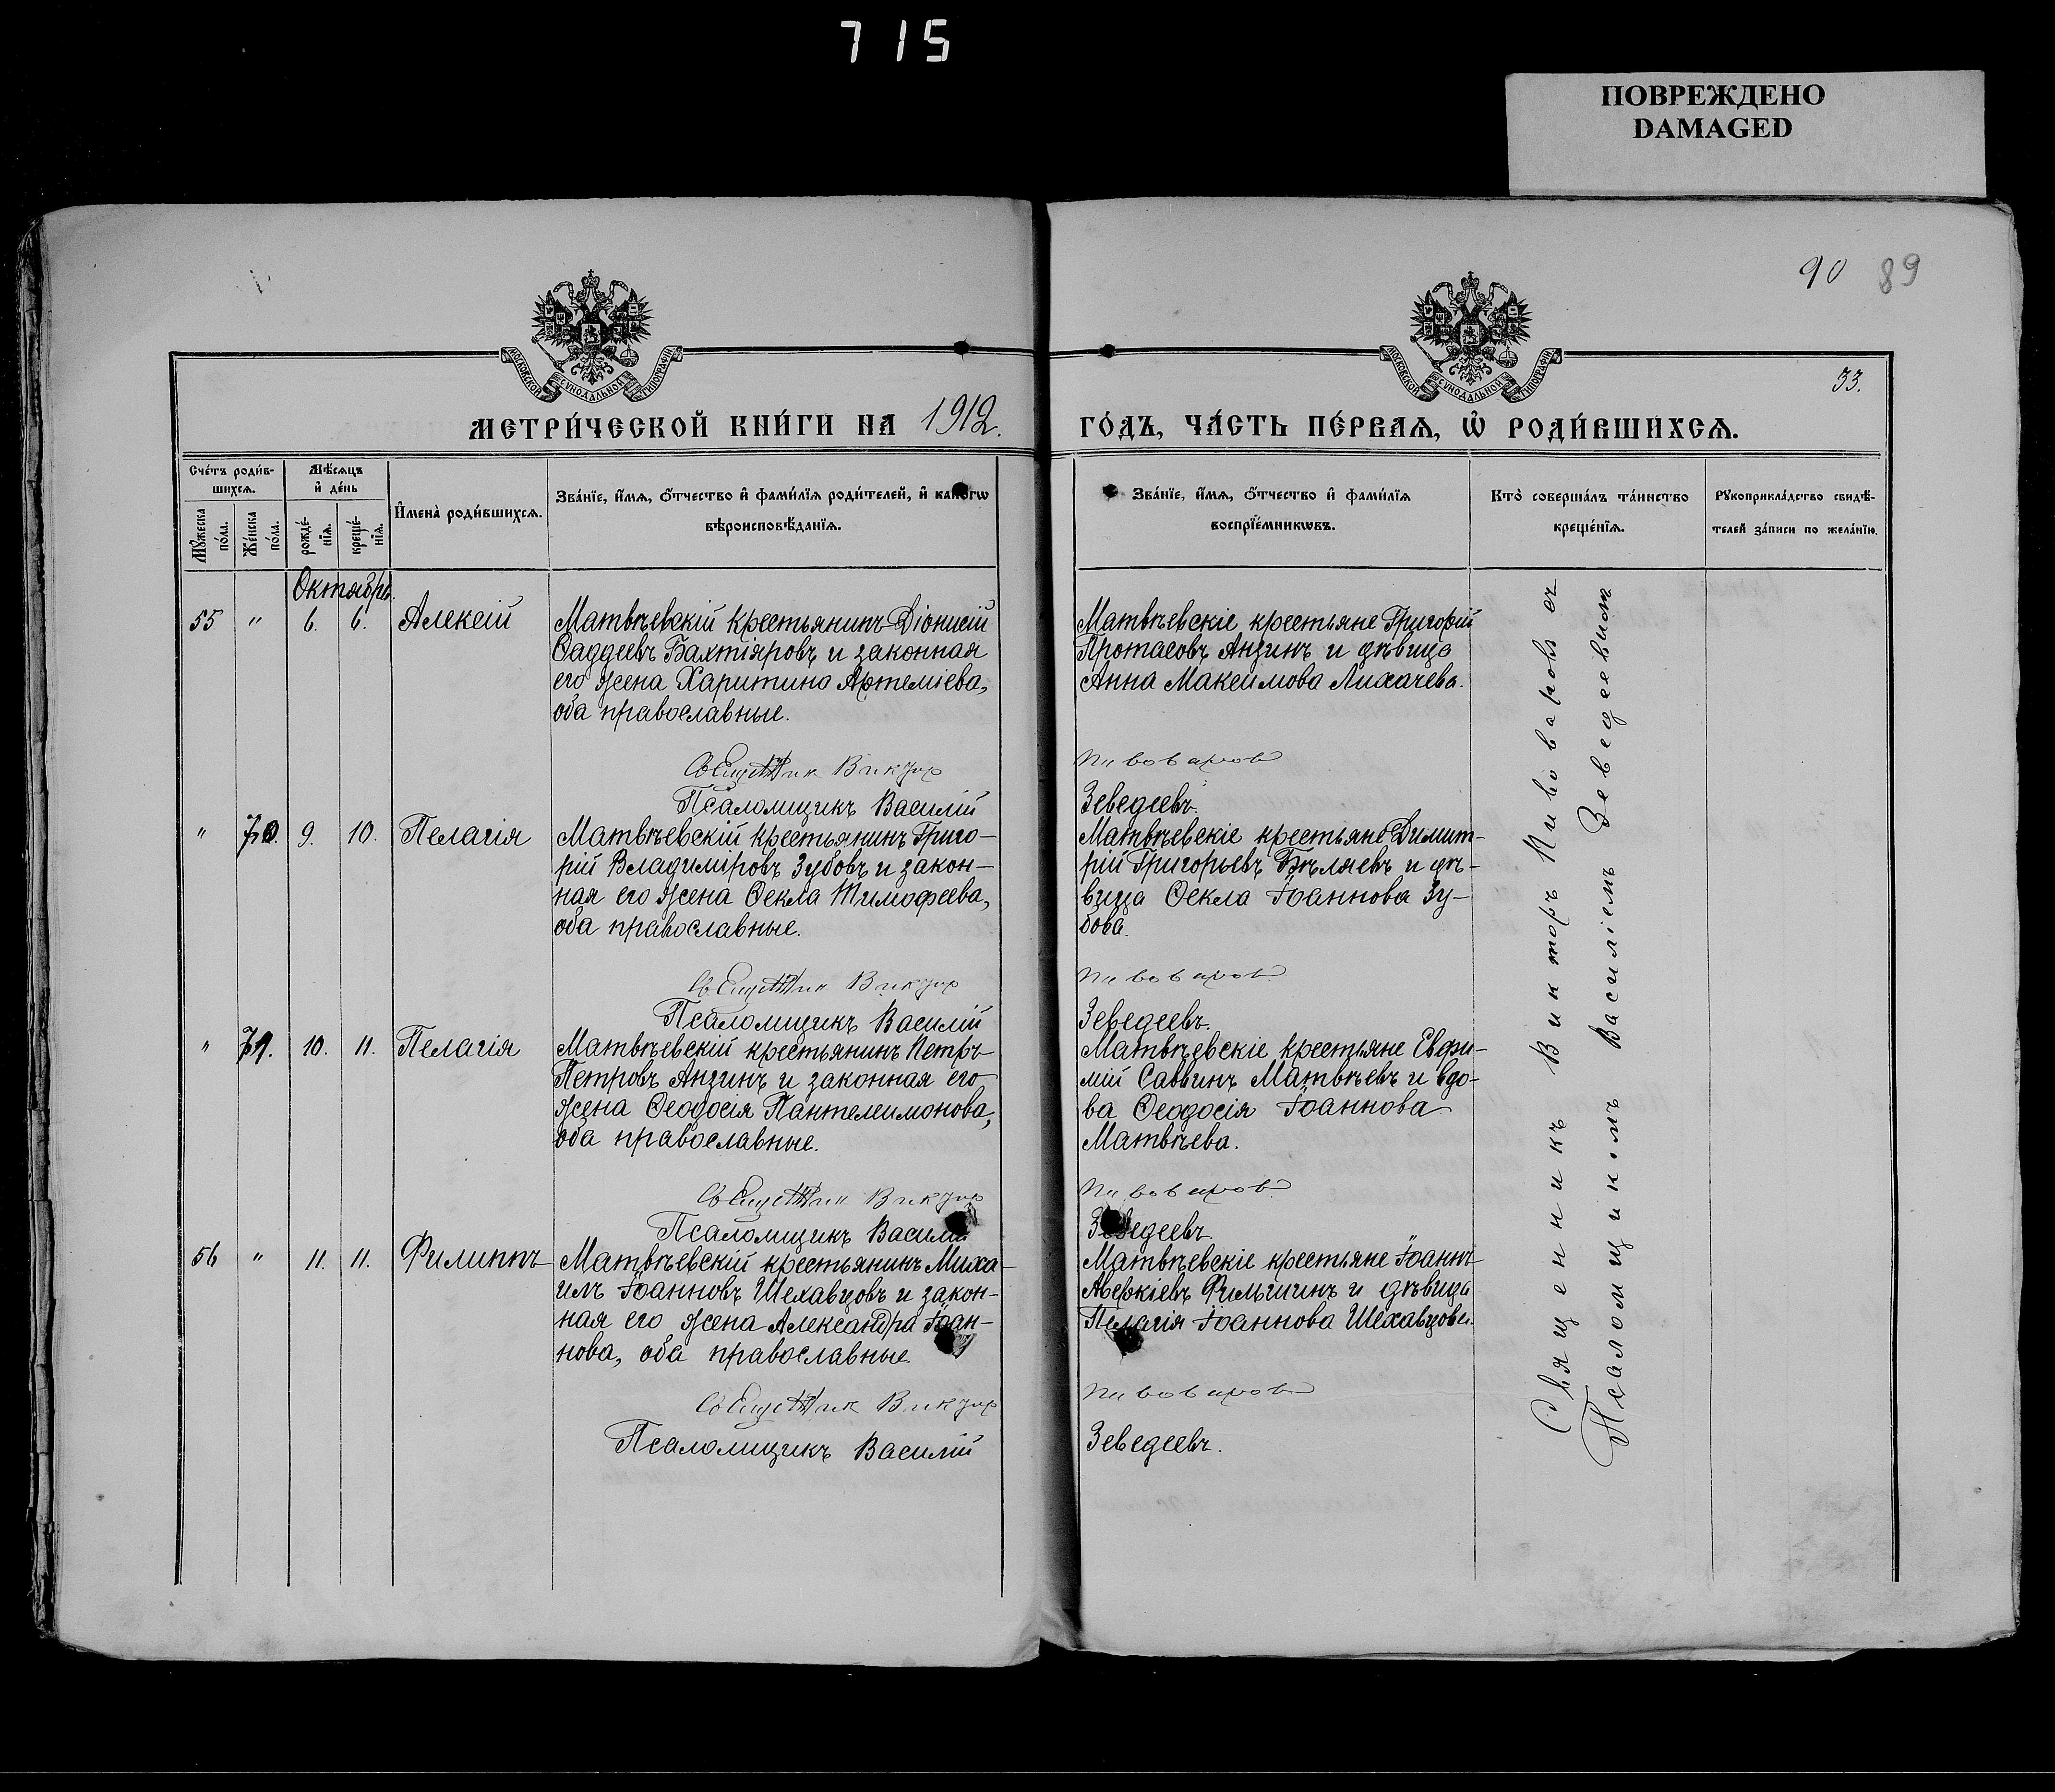 715
ПОВРЕЖДЕНО
DAMAGED
90 89
МОСКОВСКОЙ СѴНОДАЛЬНОЙ ТИПОГРАФІИ
МОСКОВСКОЙ СѴНОДАЛЬНОЙ ТИПОГРАФІИ
33.
МЕТРИ́ЧЕСКОЙ КНИ́ГИ НА 1912.
ГО́ДЪ, ЧА́СТЬ ПЕ́РВАЯ, Ѡ҆ РОДИ́ВШИХСЯ.
Сче́тъ роди́в-
шихся.
Мѣ́сяцъ
и҆ де́нь
Мꙋ́жеска
по́ла.
Же́нска
по́ла.
рожде́-
нїя.
креще́-
нїя.
И҆мена̀ роди́вшихся.
Зва́нїе, и҆́мя, ѻ҆́тчество и҆ фами́лїя роди́телей, и҆ како́гѡ
вѣроисповѣ́данїя.
Зва́нїе, и҆́мя, ѻ҆́тчество и҆ фами́лїя
воспрїе́мникѡвъ.
Кто̀ соверша́лъ та́инство
креще́нїя.
Рꙋкоприкла́дство свидѣ́-
телей за́писи по жела́нїю.
Октябрь.
55 " 6. 6. Алексій
Матвѣевскій крестьянинъ Діонисій
Ѳаддеевъ Бахтіяровъ и законная
его жена Харитина Артеміева,
оба православные.
Священник Виктор
Псаломщикъ Василій
Матвѣевскіе крестьяне Григорій
Протасовъ Анзинъ и дѣвица
Анна Максимова Лихачева.
Пивоваров
Зеведеевъ.
" 70. 9. 10. Пелагія
Матвѣевскій крестьянинъ Григо-
рій Владиміровъ Зубовъ и закон-
ная его жена Ѳекла Тимофеева,
оба православные.
Священник Виктор
Псаломщикъ Василій
Матвѣевскіе крестьяне Димит-
рій Григорьевъ Бѣляевъ и дѣ-
вица Ѳекла Іоаннова Зу-
бова.
Пивоваров
Зеведеевъ.
" 71. 10. 11. Пелагія
Матвѣевскій крестьянинъ Петръ
Петровъ Анзинъ и законная его
жена Ѳеодосія Пантелеимонова,
оба православные.
Священник Виктор
Псаломщикъ Василій
Матвѣевскіе крестьяне Евфи-
мій Саввинъ Матвѣевъ и вдо-
ва Ѳеодосія Іоаннова
Матвѣева.
Пивоваров
Зеведеевъ.
56 " 11. 11. Филиппъ
Матвѣевскій крестьянинъ Миха-
илъ Іоанновъ Шехавцовъ и закон-
ная его жена Александра Іоан-
нова, оба православные.
Священник Виктор
Псаломщикъ Василій
Матвѣевскіе крестьяне Іоаннъ
Аверкіевъ Фильшинъ и дѣвица
Пелагія Іоаннова Шехавцова.
Пивоваров
Зеведеевъ.
Священникъ Викторъ Пивоваровъ съ
Псаломщикомъ Василіемъ Зеведеевым